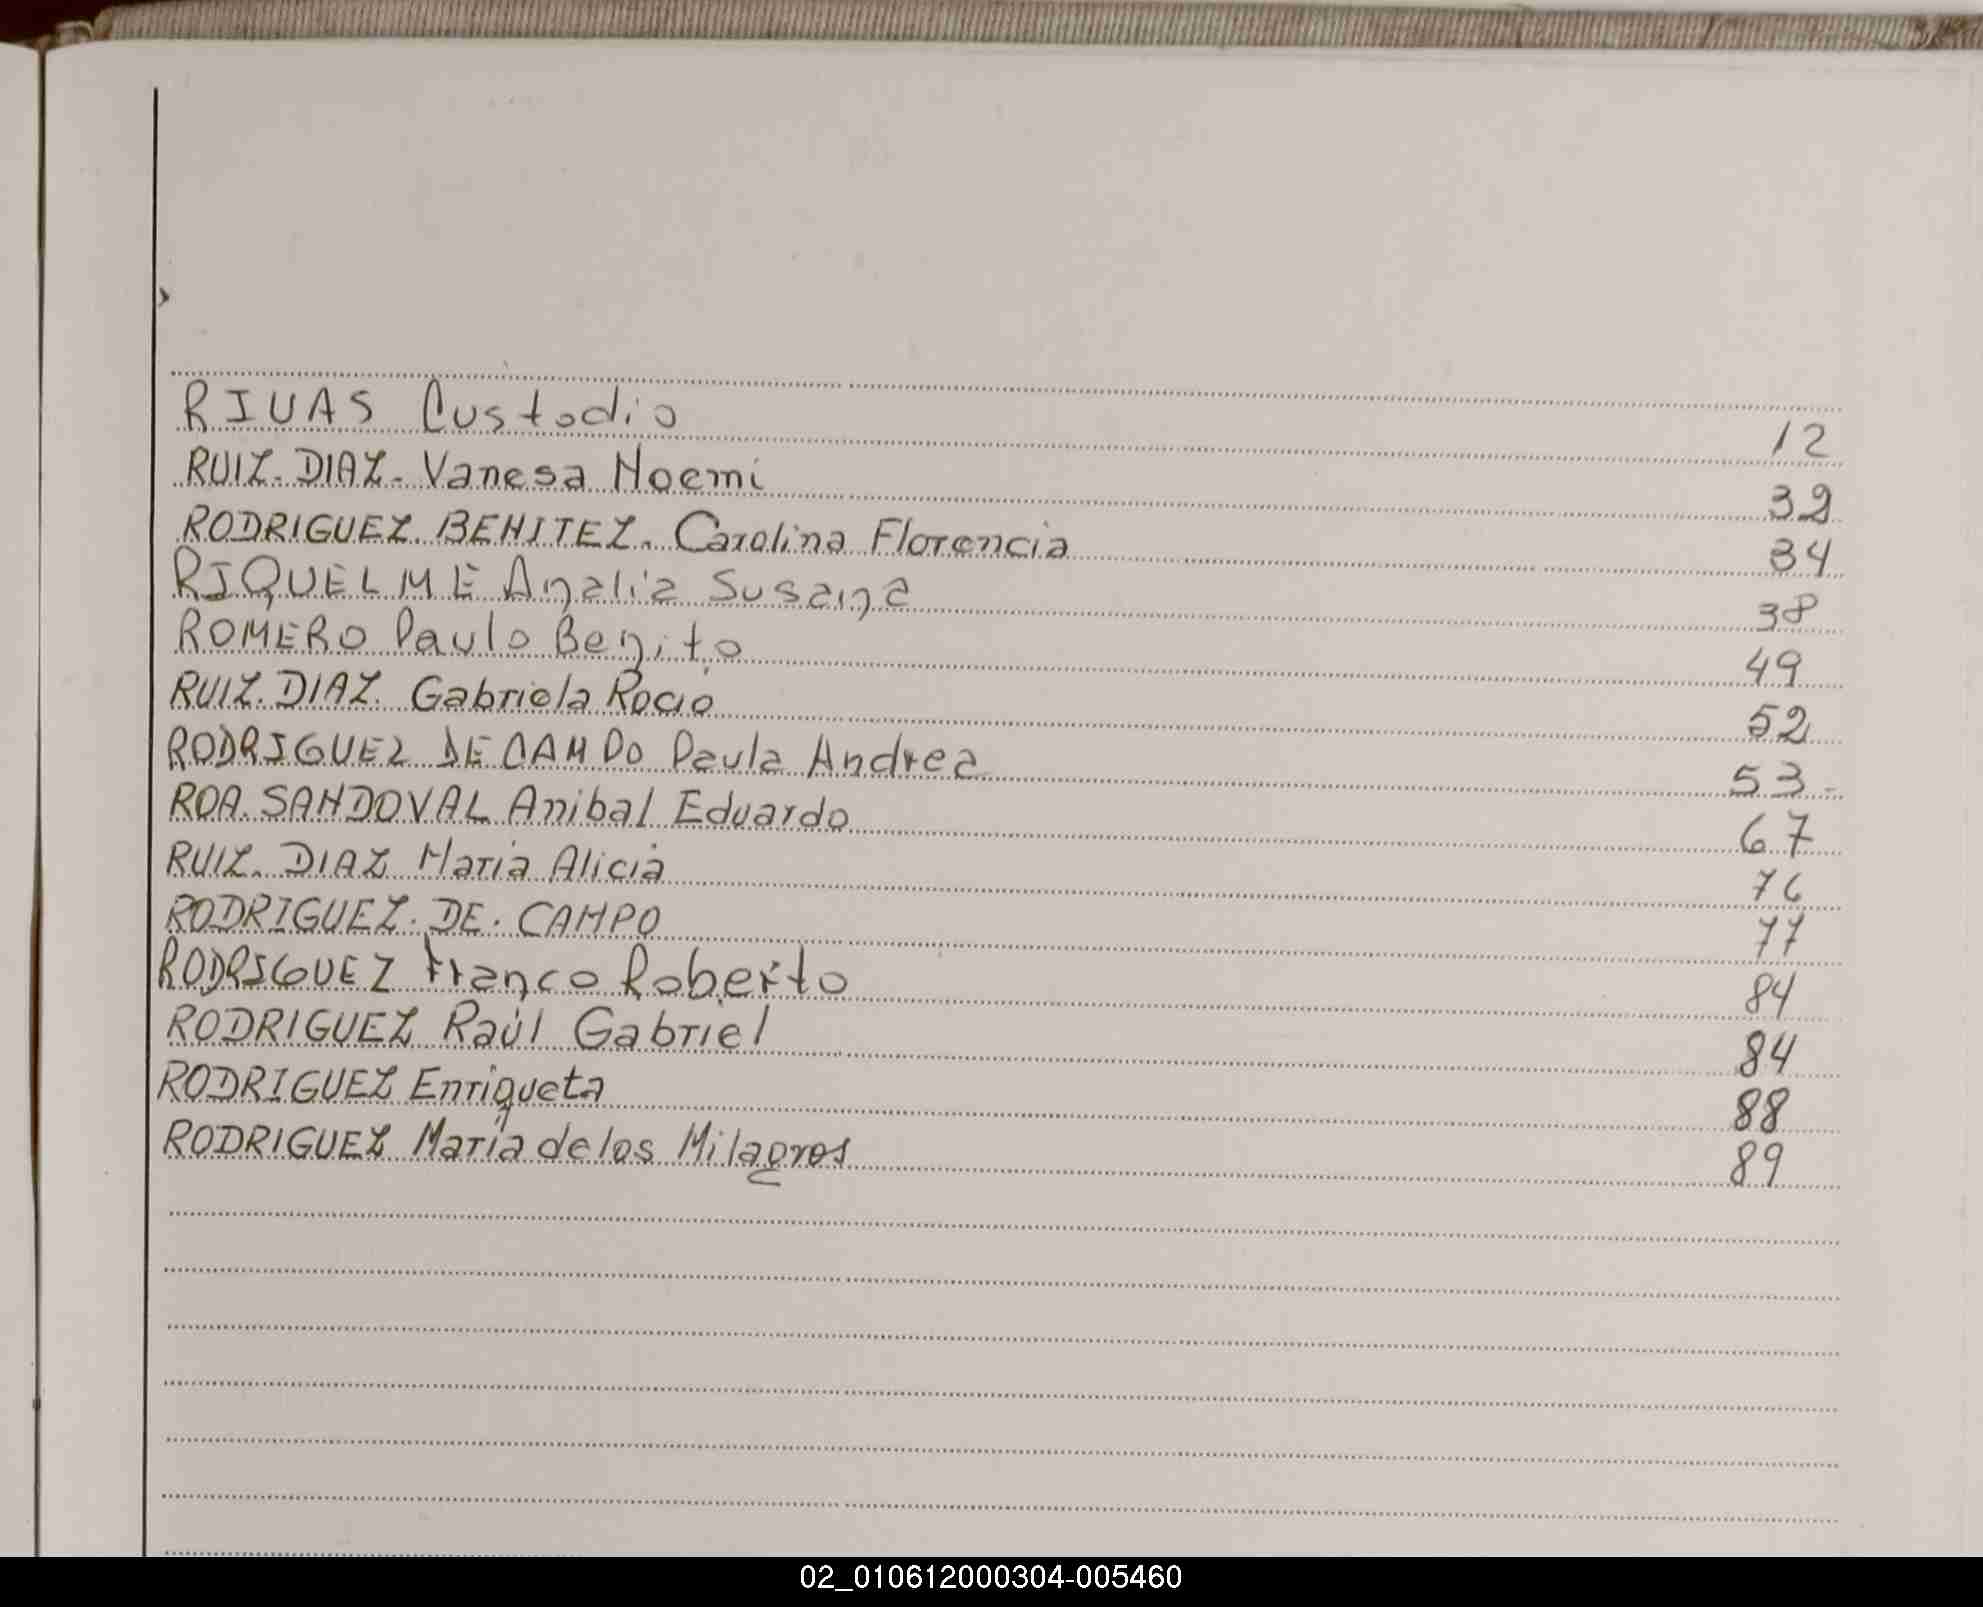 RIVAS Custodio 12
RUIZ. DIAZ. Vanesa Noemi 32
RODRIGUEZ. BENITEZ. Carolina Florencia 34
RIQUELME Analia Susana 38
ROMERO Paulo Benito 49
RUIZ. DIAZ. Gabriela Rocio 52
RODRIGUEZ DE CAMPO Paula Andrea 53
ROA. SANDOVAL Anibal Eduardo 67
RUIZ. DIAZ Maria Alicia 76
RODRIGUEZ. DE. CAMPO 77
RODRIGUEZ Franco Roberto 84
RODRIGUEZ Raúl Gabriel 84
RODRIGUEZ Enriqueta 88
RODRIGUEZ María de los Milagros 89
02_010612000304-005460